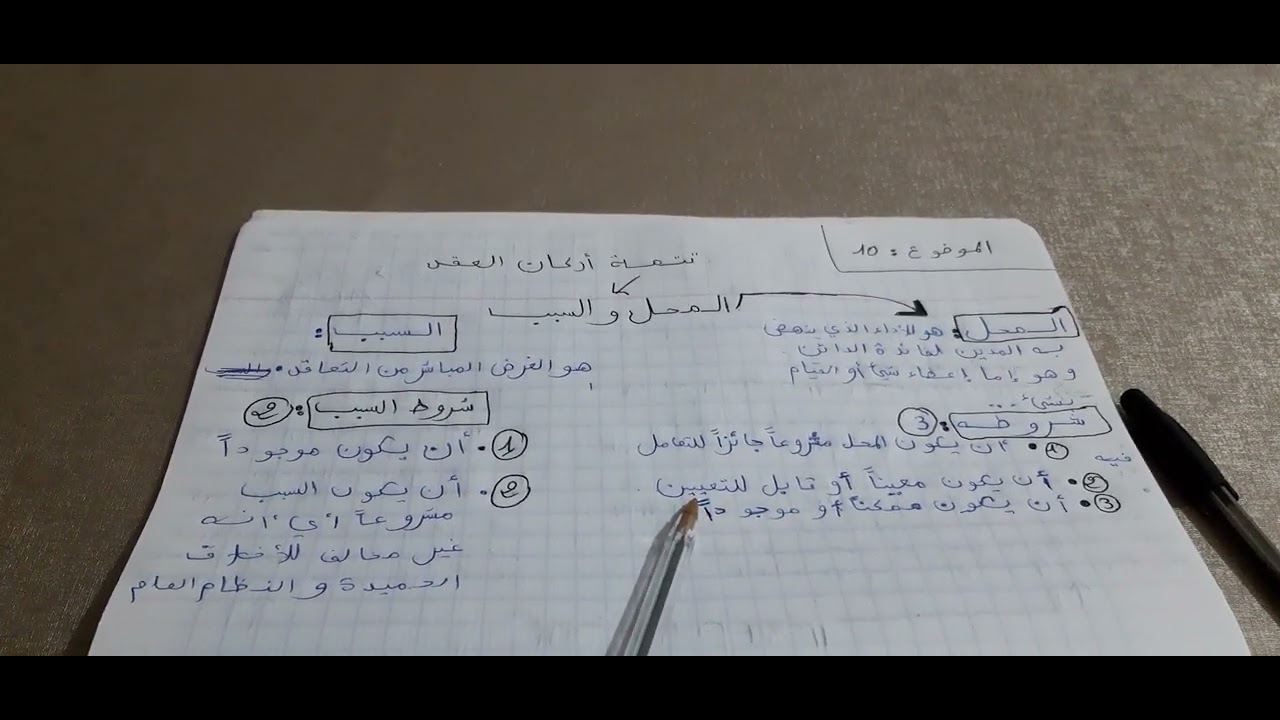 الموضوع : 10
تتمة أركان العقد
المحل و السبب
المحل : هو الأداء الذي ينهض
به المدين لفائدة الدائن
وهو إما إعطاء شيئ أو القيام
بشيئ ...
شروطه : 3
1 • أن يكون المحل مشروعاً جائزاً للتعامل
فيه
2 • أن يكون معيناً أو قابل للتعيين
3 • أن يكون ممكناً أو موجوداً
السبب :
هو الغرض المباشر من التعاقد .
شروط السبب : 2
1 • أن يكون موجوداً
2 • أن يكون السبب
مشروعاً أي أنه
غير مخالف للأخلاق
الحميدة و النظام العام